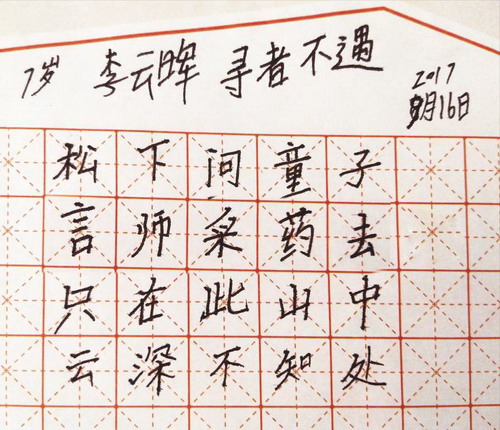 7岁 李云晖 寻者不遇
2017
8月16日
松下问童子
言师采药去
只在此山中
云深不知处